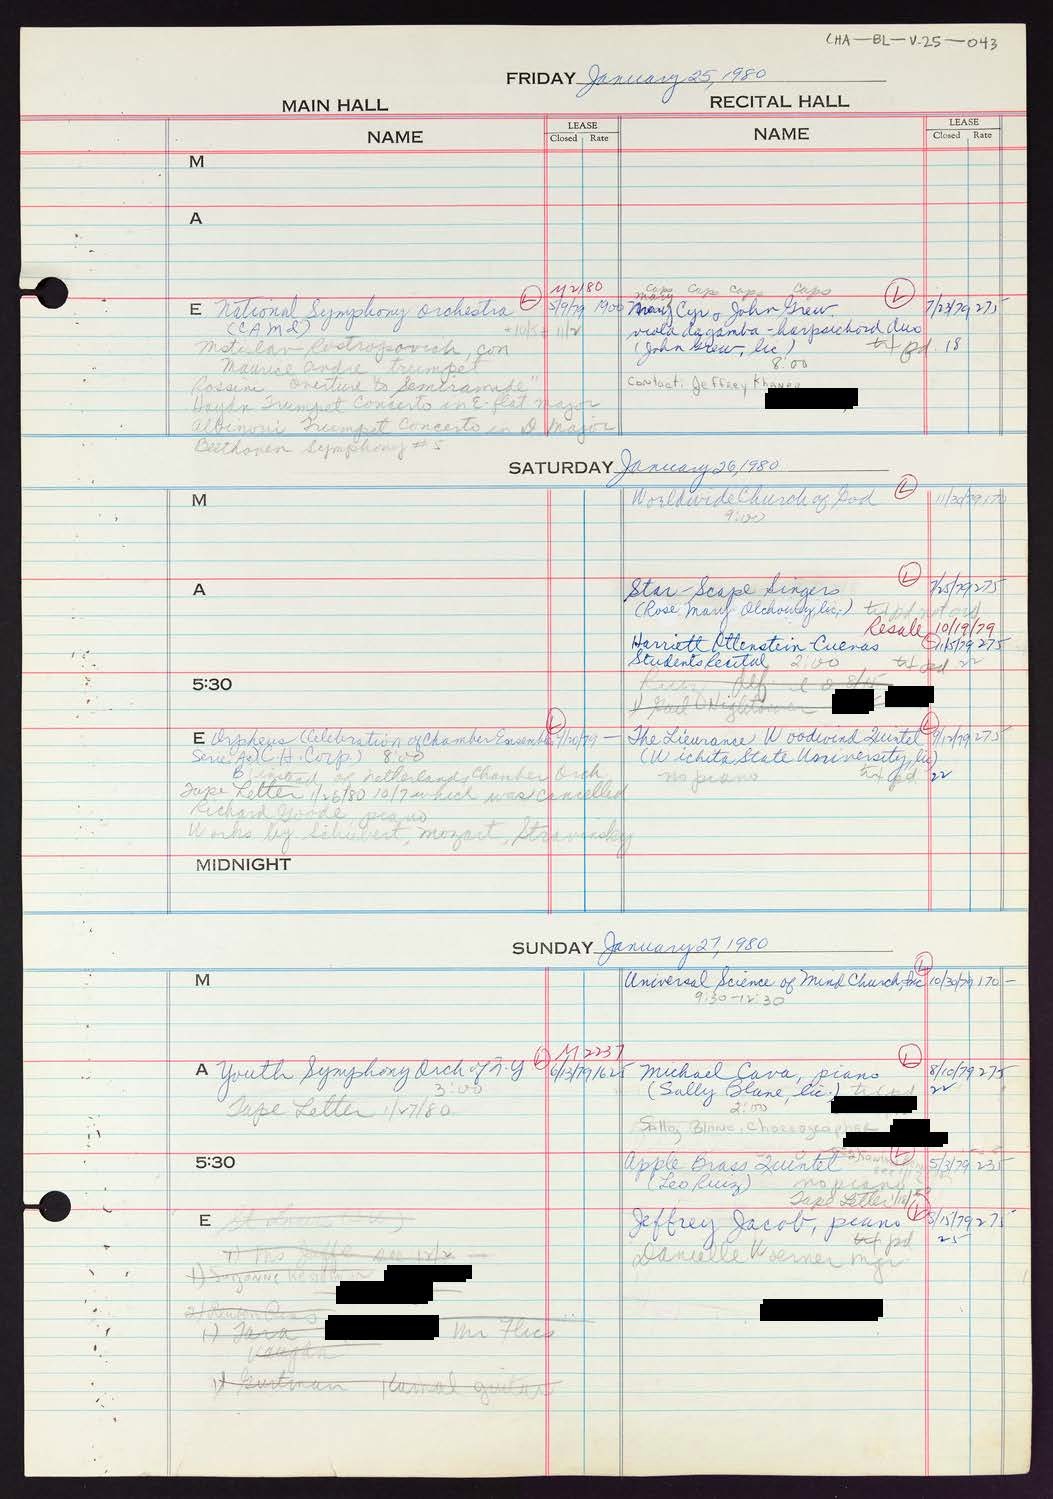 CHA-BL-V-25-043
FRIDAY January 25, 1980
MAIN HALL
RECITAL HALL
NAME
LEASE
Closed Rate
NAME
LEASE
Closed Rate
M
A
E National Symphony Orchestra L M2180 5/9/79 1900
(CAMI) +10/5 + 11/2
Mstislav Rostropovich, con
Maurice Andre trumpet
Rossini Overture to "Semiramide"
Haydn Trumpet Concerto in E-flat major
Albinoni Trumpet Concerto in D Major
Beethoven Symphony #5
caps caps caps caps
Mary
Mary Cyr, John Grew L 7/23/79 275
viola da gamba - harpsichord duo
(John Grew, lic) txt pd. 18
8:00
Contact: Jeffrey
SATURDAY January 26, 1980
M
Worldwide Church of God L 11/30/79 170
9:00
A
Star-Scape Singers L 7/25/79 275
(Rose Mary lic.)
Resale 10/19/79
Harriett Ottenstein-Cuevas L 11/5/79 275
Students Recital 2:00 txt pd 22
5:30
1) Gail Hightower
E Orpheus (Celebration of Chamber Ensemble L 9/20/79 —
Series (C.H. Corp.) 8:00
instead of Netherland Chamber Orch
Tape Letter 1/26/80 10/7 which was cancelled
Richard Goode, piano
Works by Schubert, Mozart, Stravinsky
The Lieurance Woodwind Quintet L 9/12/79 275
(Wichita State University, lic) 22
no piano txt pd
MIDNIGHT
SUNDAY January 27, 1980
M
Universal Science of Mind Church, Inc L 10/30/79 170 —
9:30-12:30
A Youth Symphony Orch of N.Y L M2237 6/13/79 1625
3:00
Tape Letter 1/27/80
Michael Cava, piano L 8/10/79 275
(Sally Blane, lic.) txt pd 22
2:00
Sally Blane, Choreographer
5:30
Apple Brass Quintet L 5/3/79 235
(Leo Ruiz) no piano
Tape Letter
E
Jeffrey Jacob, piano L 5/15/79 275
txt pd 25
Danielle Woerner mgr
1) Ms Jaffe see 12/2
1) Suzanne
2)
1) Tara Mr Flies
Vaughn
1) Gurtman Kamal guitar